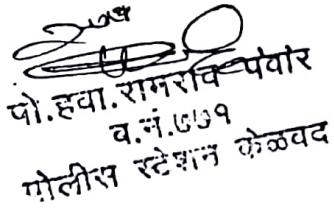 पो.हवा.रामराव पंवार
ब.नं.७७१
पोलीस स्टेशन केळवद